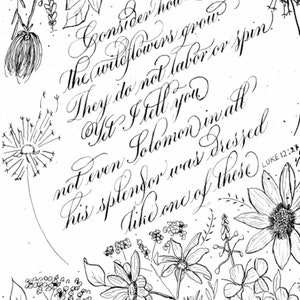 Consider how
the wildflowers grow.
They do not labor or spin.
Yet I tell you
not even Solomon in all
his splendor was dressed
like one of these
LUKE 12:27